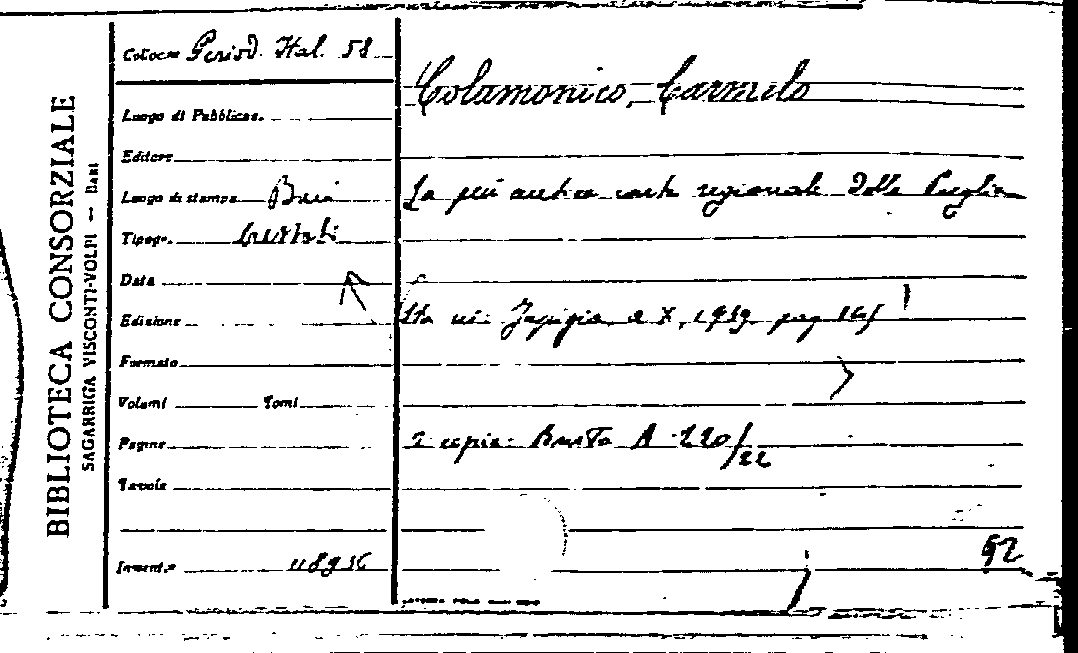 BIBLIOTECA CONSORZIALE
SAGARRIGA VISCONTI-VOLPI — BARI
Colocaz Period. Ital. 58
Luogo di Pubblicaz.
Editore
Luogo di stampa Bari
Tipogr. Cressati
Data
Edizione
Formato
Volumi Tomi
Pagine
Tavole
Invent.e 118936
Colamonico, Carmelo
La più antica carta regionale della Puglia
Sta in: Japigia a X, 1939 pag 145
2 copia: Busta A 220/22
92